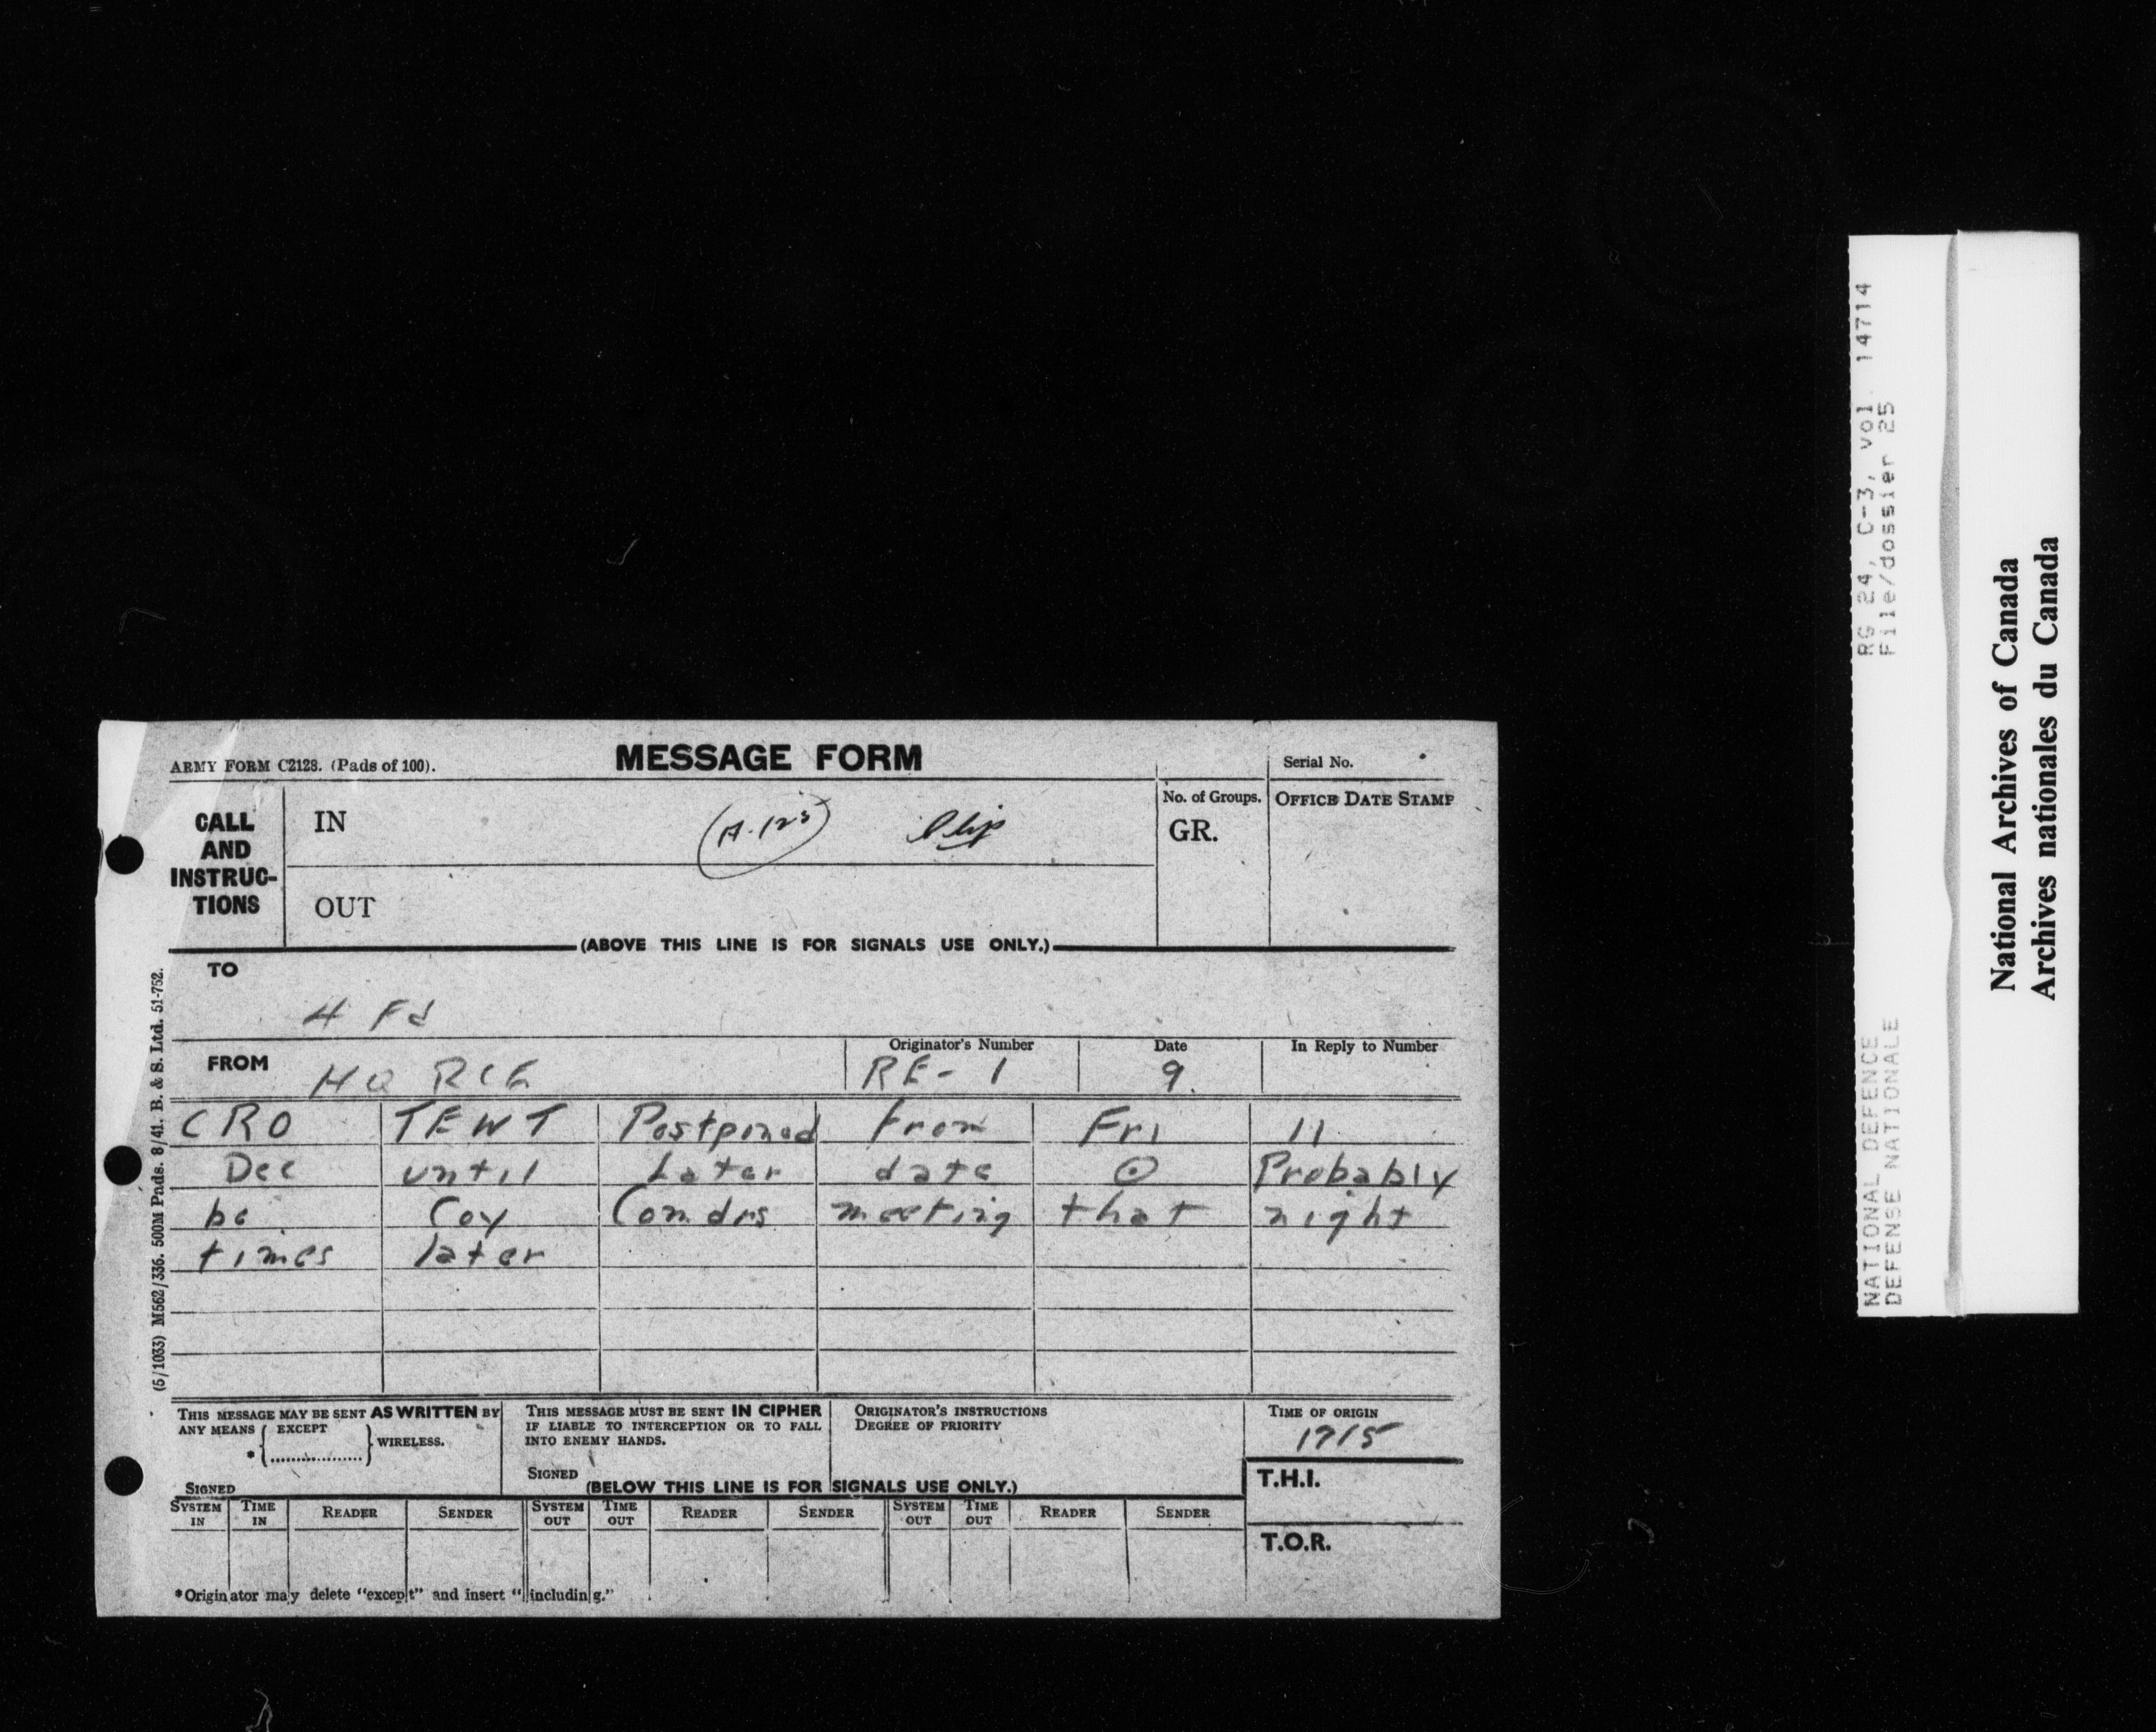 ARMY FORM C2128. (Pads of 100).
MESSAGE FORM
Serial No.
CALL AND INSTRUC-TIONS
IN
OUT
No. of Groups.
GR.
OFFICE DATE STAMP
(ABOVE THIS LINE IS FOR SIGNALS USE ONLY.)
TO
4 Fd
FROM
HQ RCE
Originator's Number
RE- 1
Date
9.
In Reply to Number
CRO TEWT Postponed from Fri 11
Dec until Later date ⊙ Probably
be Coy Comdrs meeting that night
times later
(5/1033) M562/336. 500M Pads. 8/41. B. & S. Ltd. 51-752.
THIS MESSAGE MAY BE SENT AS WRITTEN BY
ANY MEANS { EXCEPT
* {.................. } WIRELESS.
SIGNED
THIS MESSAGE MUST BE SENT IN CIPHER
IF LIABLE TO INTERCEPTION OR TO FALL
INTO ENEMY HANDS.
SIGNED
ORIGINATOR'S INSTRUCTIONS
DEGREE OF PRIORITY
TIME OF ORIGIN
1715
(BELOW THIS LINE IS FOR SIGNALS USE ONLY.)
T.H.I.
T.O.R.
SYSTEM IN TIME IN READER SENDER SYSTEM OUT TIME OUT READER SENDER SYSTEM OUT TIME OUT READER SENDER
*Originator may delete "except" and insert "including."
RG 24, C-3, vol. 14714
File/dossier 25
NATIONAL DEFENCE
DEFENSE NATIONALE
National Archives of Canada
Archives nationales du Canada